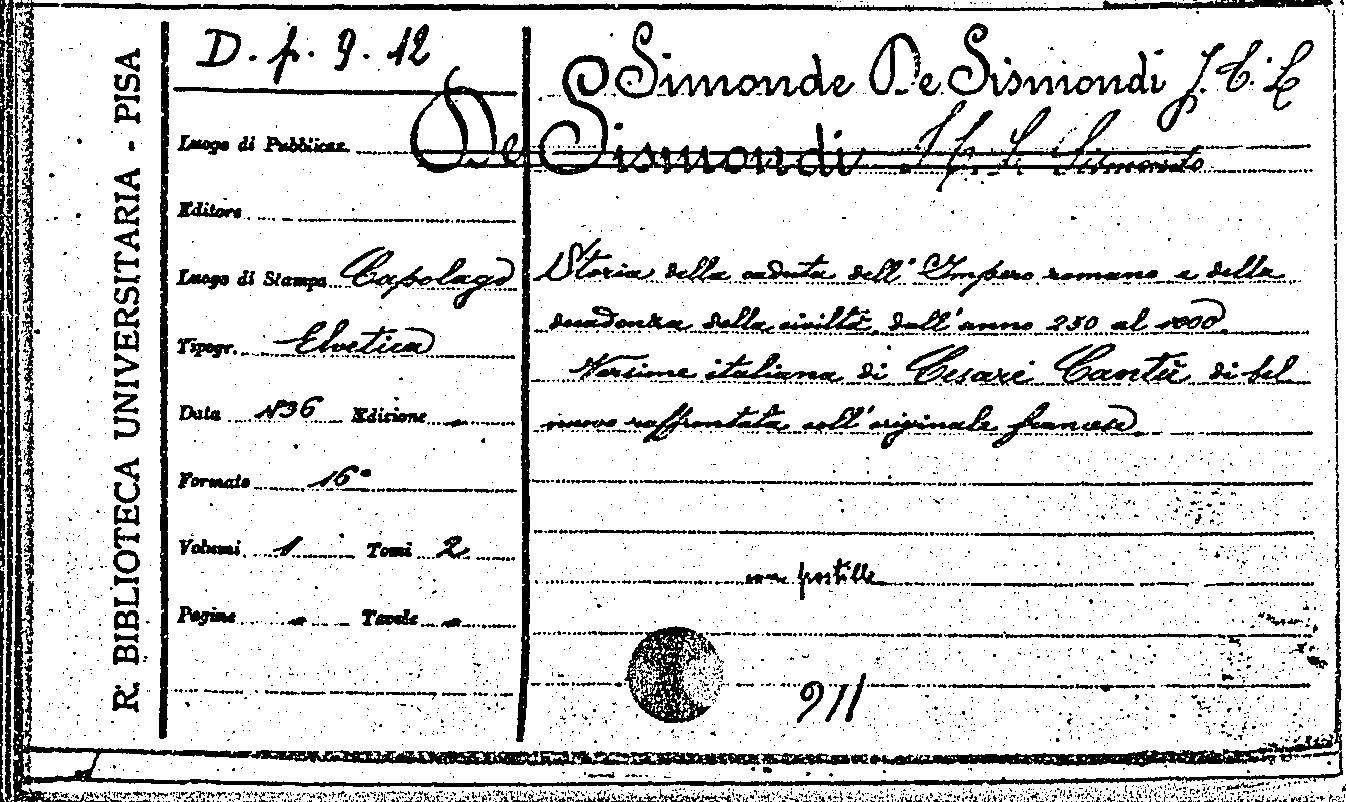 R. BIBLIOTECA UNIVERSITARIA - PISA
D. p. 9. 12
Luogo di Pubblicaz.
Editore
Luogo di Stampa Capolago
Tipogr. Elvetica
Data 1836 Edizione -
Formato 16°
Volumi 1 Tomi 2
Pagine - Tavole -
Simonde De Sismondi J. C. L
De Sismondi J. C. L. Sismondo
Storia della caduta dell'Impero romano e della
decadenza della civiltà, dall'anno 250 al 1000
Versione italiana di Cesare Cantù di bel
nuovo raffrontata coll'originale francese
con postille
911